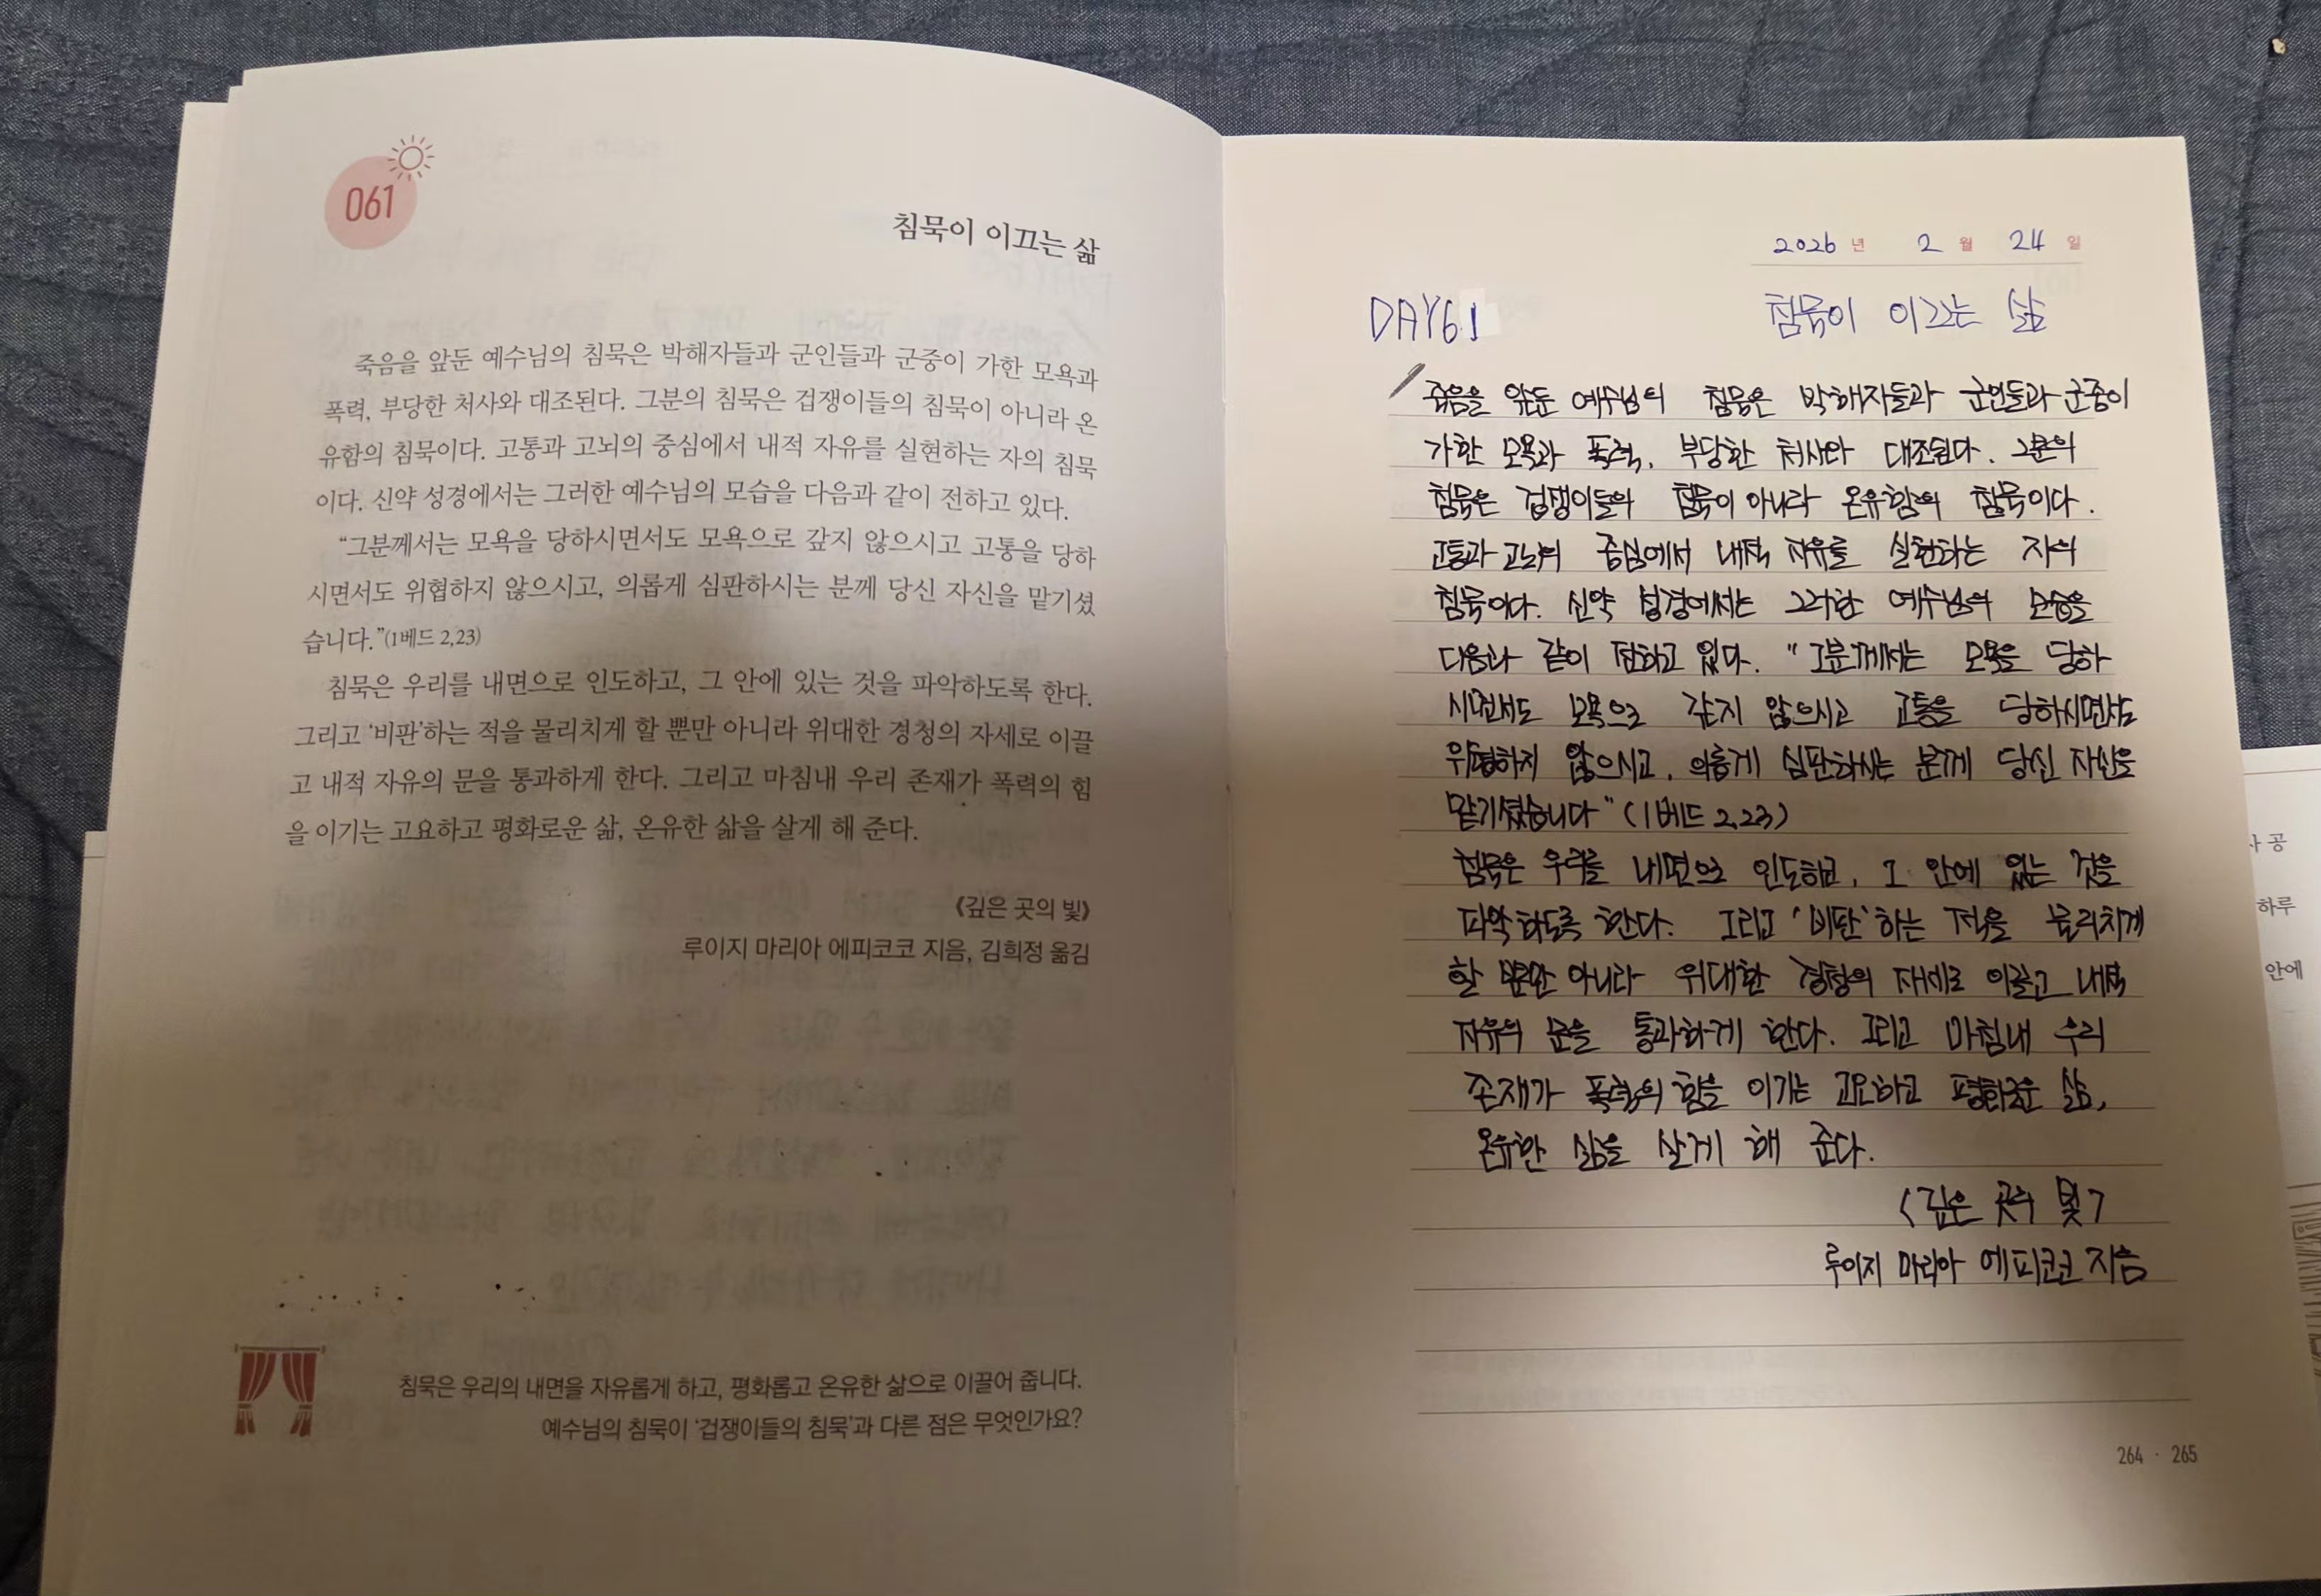 061
침묵이 이끄는 삶
죽음을 앞둔 예수님의 침묵은 박해자들과 군인들과 군중이 가한 모욕과
폭력, 부당한 처사와 대조된다. 그분의 침묵은 겁쟁이들의 침묵이 아니라 온
유함의 침묵이다. 고통과 고뇌의 중심에서 내적 자유를 실현하는 자의 침묵
이다. 신약 성경에서는 그러한 예수님의 모습을 다음과 같이 전하고 있다.
“그분께서는 모욕을 당하시면서도 모욕으로 갚지 않으시고 고통을 당하
시면서도 위협하지 않으시고, 의롭게 심판하시는 분께 당신 자신을 맡기셨
습니다.”(1베드 2,23)
침묵은 우리를 내면으로 인도하고, 그 안에 있는 것을 파악하도록 한다.
그리고 ‘비판’하는 적을 물리치게 할 뿐만 아니라 위대한 경청의 자세로 이끌
고 내적 자유의 문을 통과하게 한다. 그리고 마침내 우리 존재가 폭력의 힘
을 이기는 고요하고 평화로운 삶, 온유한 삶을 살게 해 준다.
《깊은 곳의 빛》
루이지 마리아 에피코코 지음, 김희정 옮김
침묵은 우리의 내면을 자유롭게 하고, 평화롭고 온유한 삶으로 이끌어 줍니다.
예수님의 침묵이 ‘겁쟁이들의 침묵’과 다른 점은 무엇인가요?
2026 년 2 월 24 일
DAY61 침묵이 이끄는 삶
죽음을 앞둔 예수님의 침묵은 박해자들과 군인들과 군중이
가한 모욕과 폭력, 부당한 처사와 대조된다. 그분의
침묵은 겁쟁이들의 침묵이 아니라 온유함의 침묵이다.
고통과 고뇌의 중심에서 내적 자유를 실현하는 자의
침묵이다. 신약 성경에서는 그러한 예수님의 모습을
다음과 같이 전하고 있다. "그분께서는 모욕을 당하
시면서도 모욕으로 갚지 않으시고 고통을 당하시면서도
위협하지 않으시고, 의롭게 심판하시는 분께 당신 자신을
맡기셨습니다" (1베드 2,23)
침묵은 우리를 내면으로 인도하고, 그 안에 있는 것을
파악하도록 한다. 그리고 '비판'하는 적을 물리치게
할 뿐만 아니라 위대한 경청의 자세로 이끌고 내적
자유의 문을 통과하게 한다. 그리고 마침내 우리
존재가 폭력의 힘을 이기는 고요하고 평화로운 삶,
온유한 삶을 살게 해 준다.
<깊은 곳의 빛>
루이지 마리아 에피코코 지음
264 · 265
공
하루
안에